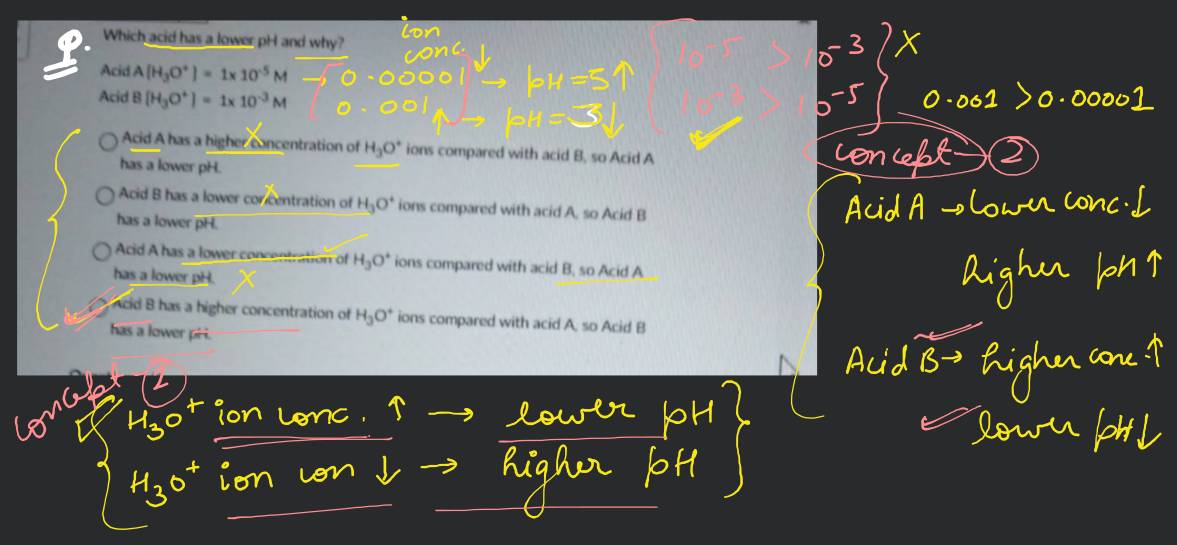 Q.
Which acid has a lower pH and why?
Acid A [H₃O⁺] = 1x 10⁻⁵ M → 0.00001 → pH = 5 ↑
Acid B [H₃O⁺] = 1x 10⁻³ M 0.001 ↑ → pH = 3 ↓
ion
conc. ↓
10⁻⁵ > 10⁻³ X
10⁻³ > 10⁻⁵ ✓
0.001 > 0.00001
Acid A has a higher concentration of H₃O⁺ ions compared with acid B, so Acid A
has a lower pH. X
Acid B has a lower concentration of H₃O⁺ ions compared with acid A, so Acid B
has a lower pH. X
Acid A has a lower concentration of H₃O⁺ ions compared with acid B, so Acid A
has a lower pH. X
Acid B has a higher concentration of H₃O⁺ ions compared with acid A, so Acid B
has a lower pH.
concept → ②
Acid A → lower conc. ↓
higher pH ↑
Acid B → higher conc. ↑
lower pH ↓
concept - ②
H₃O⁺ ion conc. ↑ → lower pH
H₃O⁺ ion con ↓ → higher pH